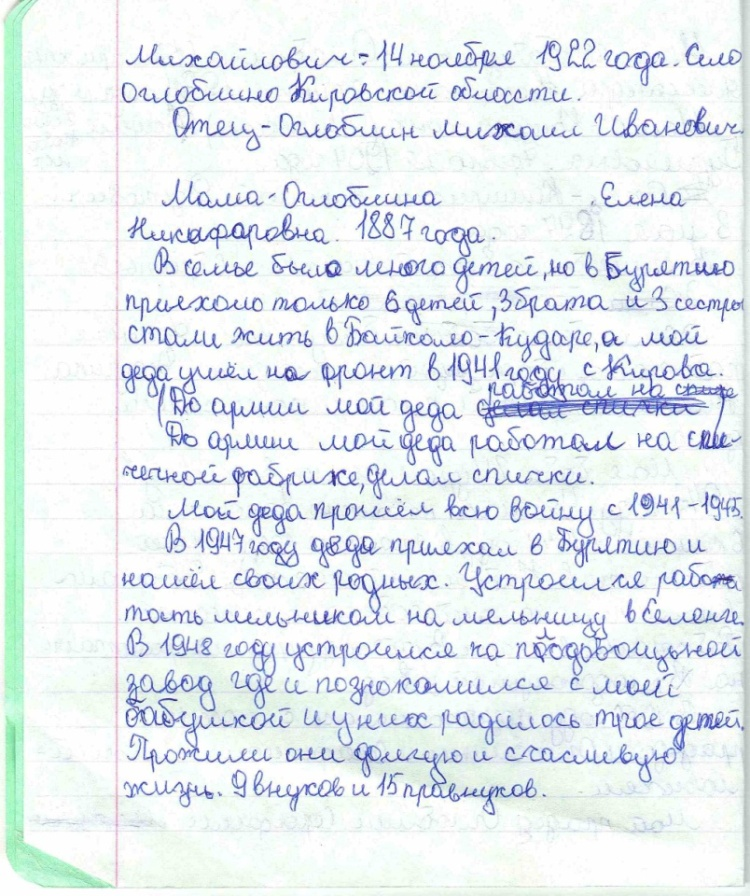 Михайлович - 14 ноября 1922 года. Село
Оглоблино Кировской области.
Отец - Оглоблин Михаил Иванович.
Мама - Оглоблина Елена
Никафаровна. 1887 года.
В семье было много детей, но в Бурятию
приехало только 6 детей, 3 брата и 3 сестры
стали жить в Байкало-Кударе, а мой
деда ушёл на фронт в 1941 году с Кирова.
работал на спич
(До армии мой деда делал спички)
До армии мой деда работал на спи-
чечной фабрике, делал спички.
Мой деда прошёл всю войну с 1941-1945.
В 1947 году деда приехал в Бурятию и
нашёл своих родных. Устроился рабо
тать мельником на мельницу в Селенге.
В 1948 году устроился на продовощьной
завод где и познокомился с моей
бабушкой и у них радилось трое детей.
Прожили они долгую и счасливую
жизнь. 9 внуков и 15 правнуков.